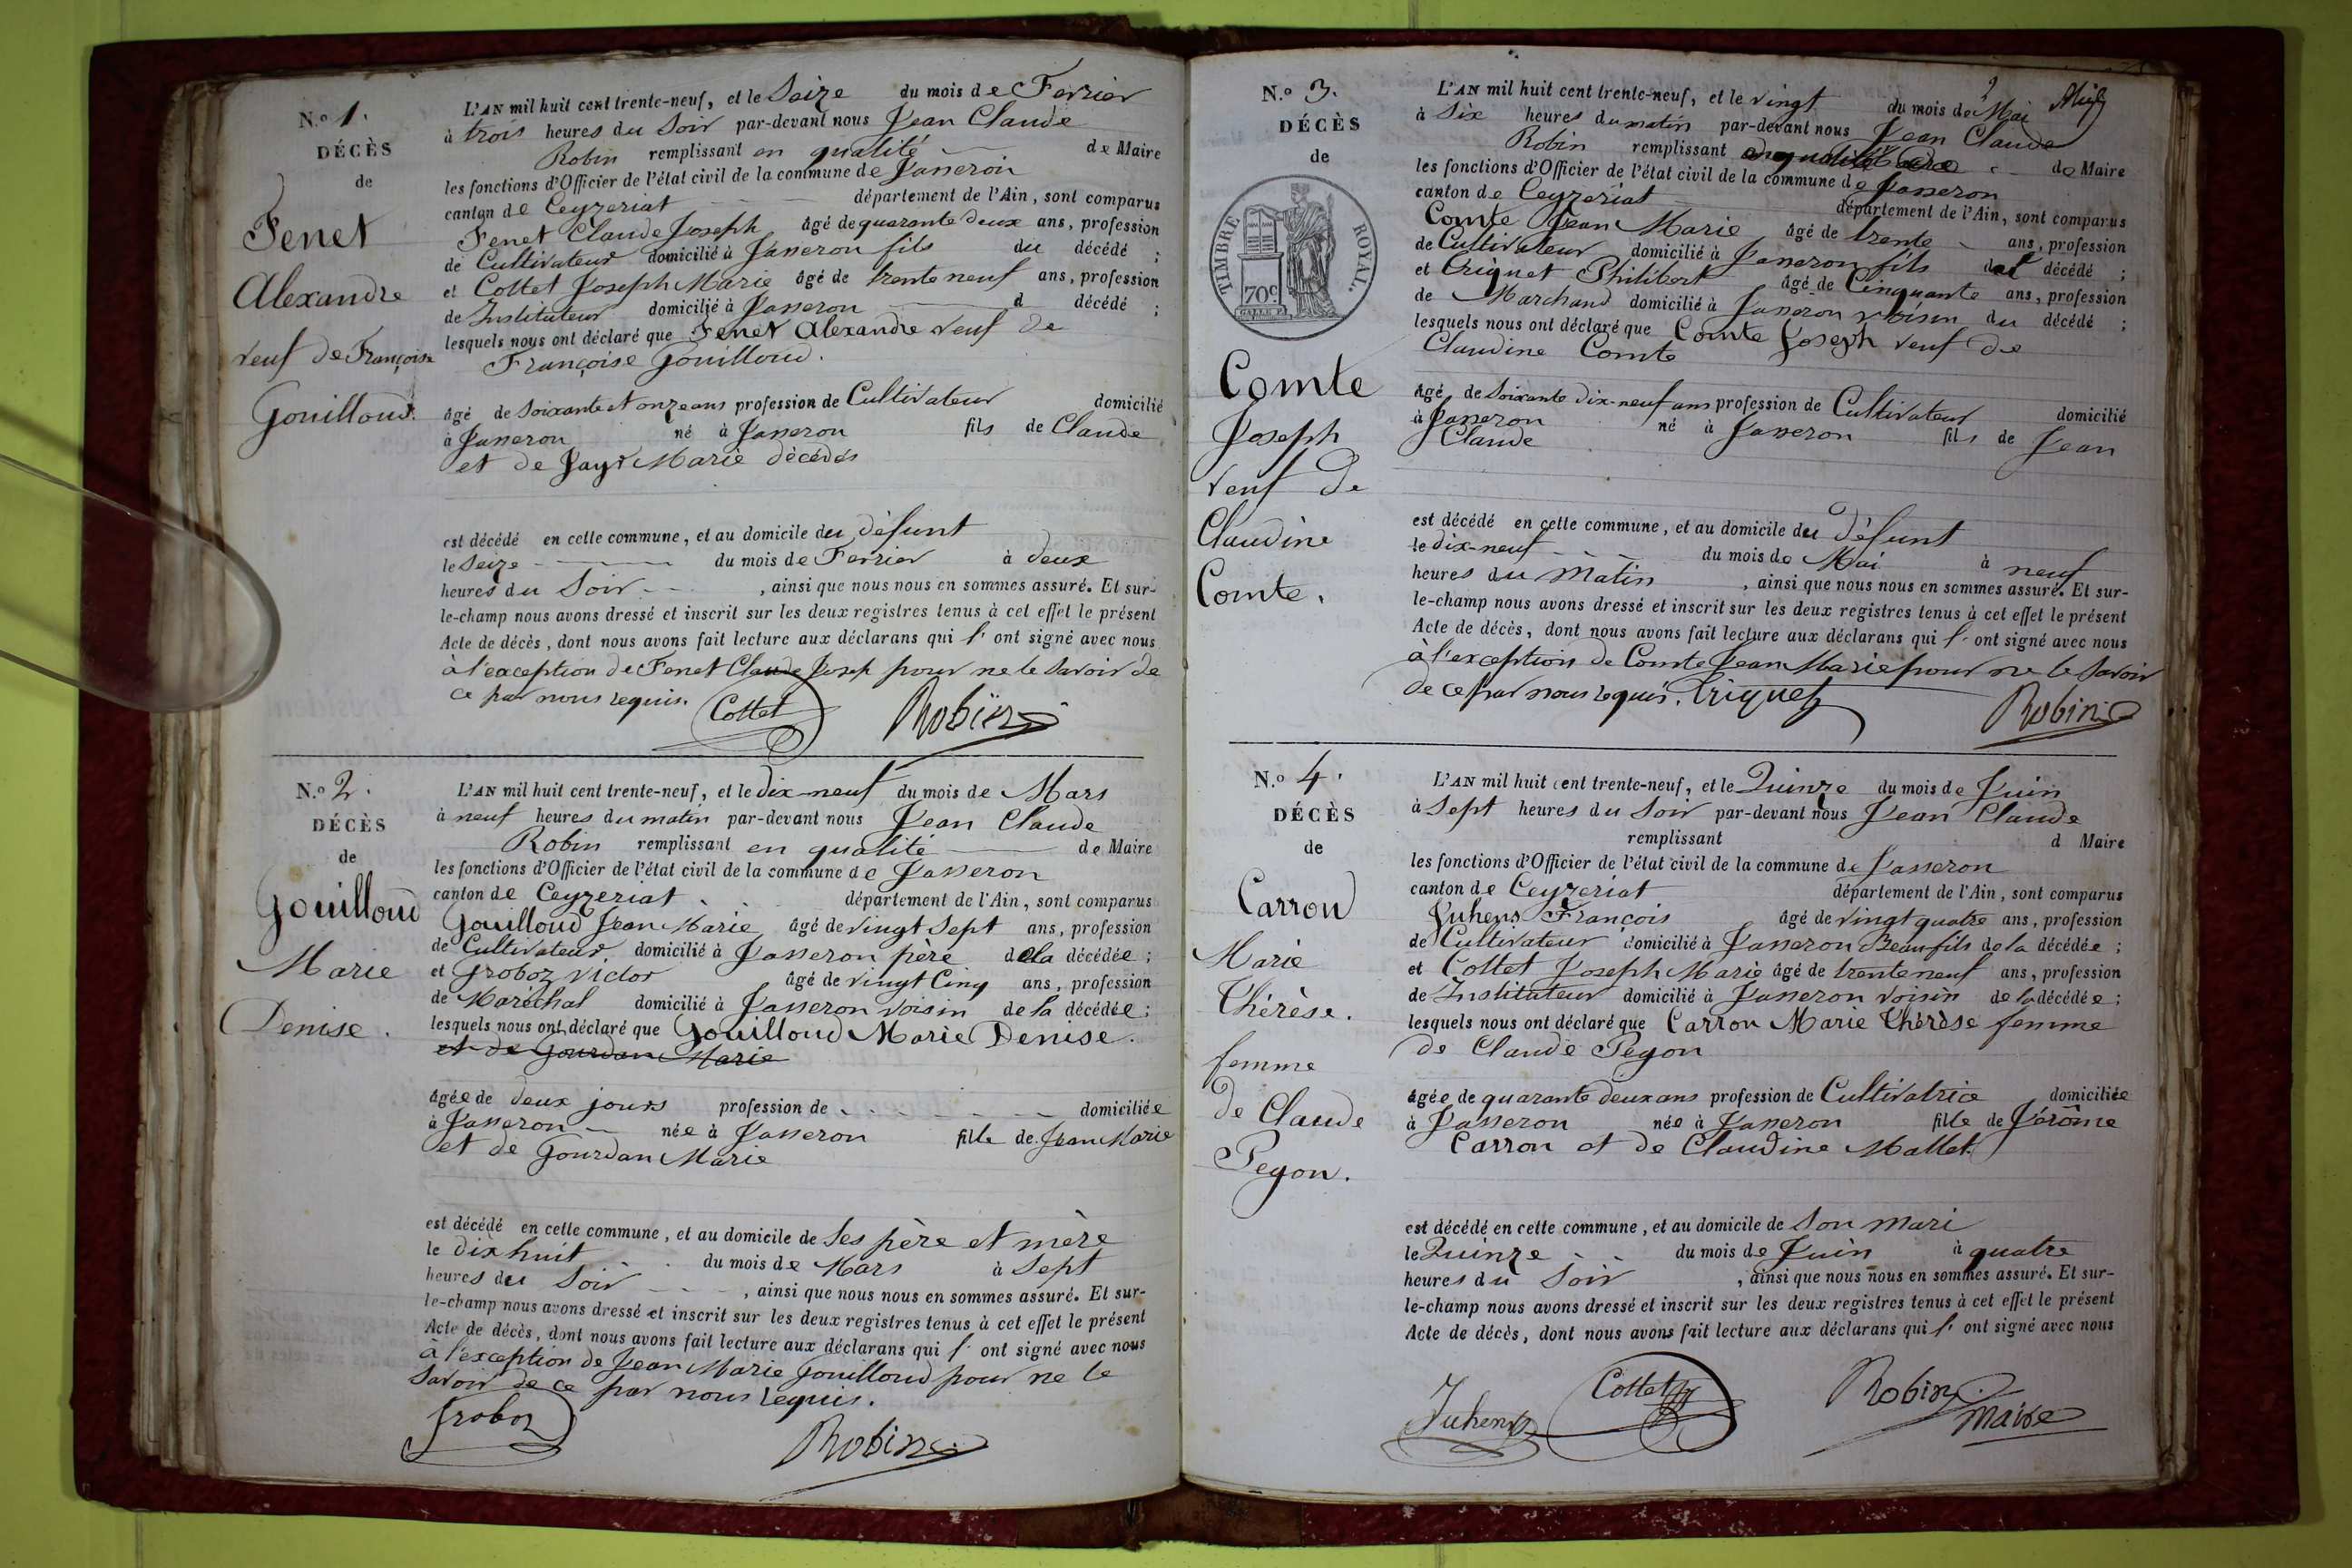 N.o 1.
DÉCÈS
de
Fenet
Alexandre
veuf de Françoise
Gouilloud.
L'AN mil huit cent trente-neuf, et le Seize du mois de Fevrier
à trois heures du Soir par-devant nous Jean Claude
Robin remplissant en qualité de Maire
les fonctions d'Officier de l'état civil de la commune de Jasseron
canton de Ceyzeriat département de l'Ain, sont comparus
Fenet Claude Joseph âgé de quarante deux ans, profession
de Cultivateur domicilié à Jasseron fils du décédé ;
et Cottet Joseph Marie âgé de trente neuf ans, profession
de Instituteur domicilié à Jasseron d décédé ;
lesquels nous ont déclaré que Fenet Alexandre veuf de
Françoise Gouilloud.
âgé de Soixante et onze ans profession de Cultivateur domicilié
à Jasseron né à Jasseron fils de Claude
et de Marie décédés
est décédé en cette commune, et au domicile du défunt
le Seize du mois de Fevrier à deux
heures du Soir, ainsi que nous nous en sommes assuré. Et sur-
le-champ nous avons dressé et inscrit sur les deux registres tenus à cet effet le présent
Acte de décès, dont nous avons fait lecture aux déclarans qui l' ont signé avec nous
à l'exception de Fenet Claude Josep pour ne le savoir de
ce par nous requis. Cottet Robin
N.o 2.
DÉCÈS
de
Gouilloud
Marie
Denise.
L'AN mil huit cent trente-neuf, et le dix-neuf du mois de Mars
à neuf heures du matin par-devant nous Jean Claude
Robin remplissant en qualité de Maire
les fonctions d'Officier de l'état civil de la commune de Jasseron
canton de Ceyzeriat département de l'Ain, sont comparus
Gouilloud Jean Marie âgé de vingt Sept ans, profession
de Cultivateur domicilié à Jasseron père de la décédée ;
et Groboz Victor âgé de vingt Cinq ans, profession
de Maréchal domicilié à Jasseron voisin de la décédée ;
lesquels nous ont déclaré que Gouilloud Marie Denise.
et de Gourdan Marie
âgée de deux jours profession de domiciliée
à Jasseron née à Jasseron fille de Jean Marie
et de Gourdan Marie
est décédé en cette commune, et au domicile de Ses père et mère
le dix huit du mois de Mars à Sept
heures du Soir, ainsi que nous nous en sommes assuré. Et sur-
le-champ nous avons dressé et inscrit sur les deux registres tenus à cet effet le présent
Acte de décès, dont nous avons fait lecture aux déclarans qui l' ont signé avec nous
à l'exception de Jean Marie Gouilloud pour ne le
Savoir de ce par nous requis.
Groboz
Robin
2
N.o 3.
DÉCÈS
de
TIMBRE ROYAL.
70c
Comte
Joseph
veuf de
Claudine
Comte.
L'AN mil huit cent trente-neuf, et le vingt du mois de Mai
à Six heures du matin par-devant nous Jean Claude
Robin remplissant de Maire
les fonctions d'Officier de l'état civil de la commune de Jasseron
canton de Ceyzeriat département de l'Ain, sont comparus
Comte Jean Marie âgé de trente ans, profession
de Cultivateur domicilié à Jasseron fils décédé ;
et Criquet Philibert âgé de Cinquante ans, profession
de Marchand domicilié à Jasseron voisin du décédé ;
lesquels nous ont déclaré que Comte Joseph veuf de
Claudine Comte
âgé de Soixante dix-neuf ans profession de Cultivateur domicilié
à Jasseron né à Jasseron fils de Jean
Claude
est décédé en cette commune, et au domicile du défunt
le dix-neuf du mois de Mai à neuf
heures du Matin, ainsi que nous nous en sommes assuré. Et sur-
le-champ nous avons dressé et inscrit sur les deux registres tenus à cet effet le présent
Acte de décès, dont nous avons fait lecture aux déclarans qui l' ont signé avec nous
à l'exception de Comte Jean Marie pour ne le Savoir
de ce par nous requis. Criquet
Robin
N.o 4.
DÉCÈS
de
Carron
Marie
Thérèse.
femme
de Claude
Pegon.
L'AN mil huit cent trente-neuf, et le Quinze du mois de Juin
à Sept heures du Soir par-devant nous Jean Claude
remplissant d Maire
les fonctions d'Officier de l'état civil de la commune de Jasseron
canton de Ceyzeriat département de l'Ain, sont comparus
Juhens François âgé de vingt quatre ans, profession
de Cultivateur domicilié à Jasseron Beau fils de la décédée ;
et Cottet Joseph Marie âgé de trente neuf ans, profession
de Instituteur domicilié à Jasseron voisin de la décédée ;
lesquels nous ont déclaré que Carron Marie Thérèse femme
de Claude Pegon
âgée de quarante deux ans profession de Cultivatrice domiciliée
à Jasseron née à Jasseron fille de Jérôme
Carron et de Claudine Mallet.
est décédé en cette commune, et au domicile de Son mari
le Quinze du mois de Juin à quatre
heures du Soir, ainsi que nous nous en sommes assuré. Et sur-
le-champ nous avons dressé et inscrit sur les deux registres tenus à cet effet le présent
Acte de décès, dont nous avons fait lecture aux déclarans qui l' ont signé avec nous
Juhens Cottet Robin
maire